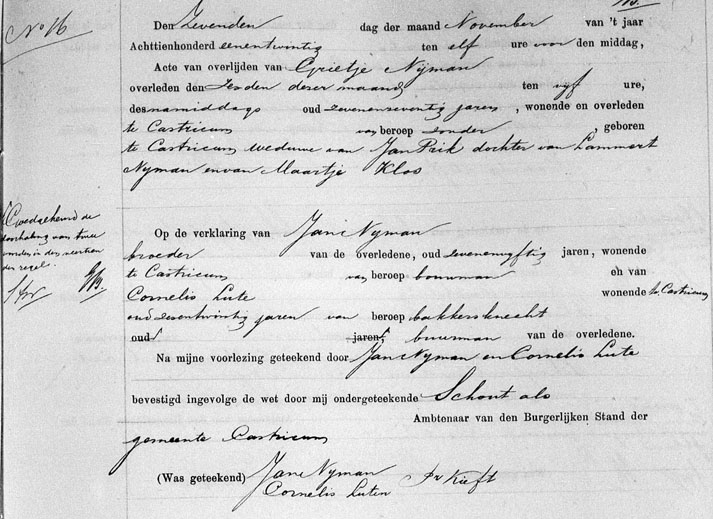 No 16
Den zevenden dag der maand November van 't jaar
Achttienhonderd eenentwintig ten elf ure voor den middag,
Acte van overlijden van Grietje Nyman
overleden den zesden dezer maand ten vijf ure,
des namiddags oud zevenenseventig jaren, wonende en overleden
te Castricum van beroep zonder, geboren
te Castricum weduwe van Jan Prik dochter van Lammert
Nyman en van Maartje Klos
Goedgekeurd de
doorhaling van twee
woorden in den
der regel.
Op de verklaring van Jan Nyman
broeder van de overledene, oud zevenenvyftig jaren, wonende
te Castricum van beroep bouwman en van
Cornelis Lute wonende te Castricum
oud zesentwintig jaren van beroep bakkersknecht
oud jaren, buurman van de overledene.
Na mijne voorlezing geteekend door Jan Nyman en Cornelis Lute
bevestigd ingevolge de wet door mij ondergeteekende Schout als
Ambtenaar van den Burgerlijken Stand der
gemeente Castricum
(Was geteekend) Jan Nyman
Cornelis Luten Kieft